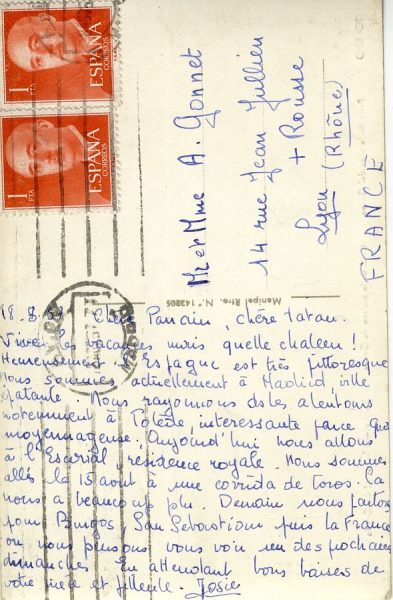 1
PTA
ESPAÑA
CORREOS
1
PTA
ESPAÑA
CORREOS
M et Mme A. Gonnet
14 rue Jean Jullien
+ Rousse
Lyon (Rhône)
FRANCE
Manipel Rtro. N.º 143205
18.8. Cher Parrain, chère tatan.
Vive les vacances mais quelle chaleur!
Heureusement Espagne est très pittoresque
Nous sommes actuellement à Madrid, ville
épatante. Nous rayonnons ds les alentours
notemment à Tolède, interessante parce que
moyennageuse. Aujourd'hui nous allons
à l'Escurial, résidence royale. Nous sommes
allés le 15 août à une corrida de toros. Ca
nous a beaucoup plu. Demain nous partons
pour Burgos, San Sebastian puis la France
où nous pensons vous voir un des prochains
dimanches. En attendant bons baisers de
votre nièce et filleule. Josie